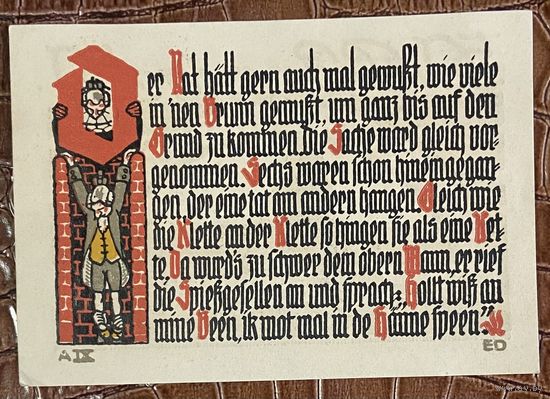 Der Rat hätt gern auch mal gewußt, wie viele
in'nen Brunn gemußt, um ganz bis auf den
Grund zu kommen. Die Sache ward gleich vor-
genommen. Sechs waren schon hineingegan-
gen, der eine tat am andern hangen. Gleich wie
die Klette an der Klette so hingen sie als eine Ket-
te. Da wurd's zu schwer dem obern Mann, er rief
die Spießgesellen an und sprach: "Hollt wiß an
mine Been, ik mot mal in de Hänne speen."
A IX
ED